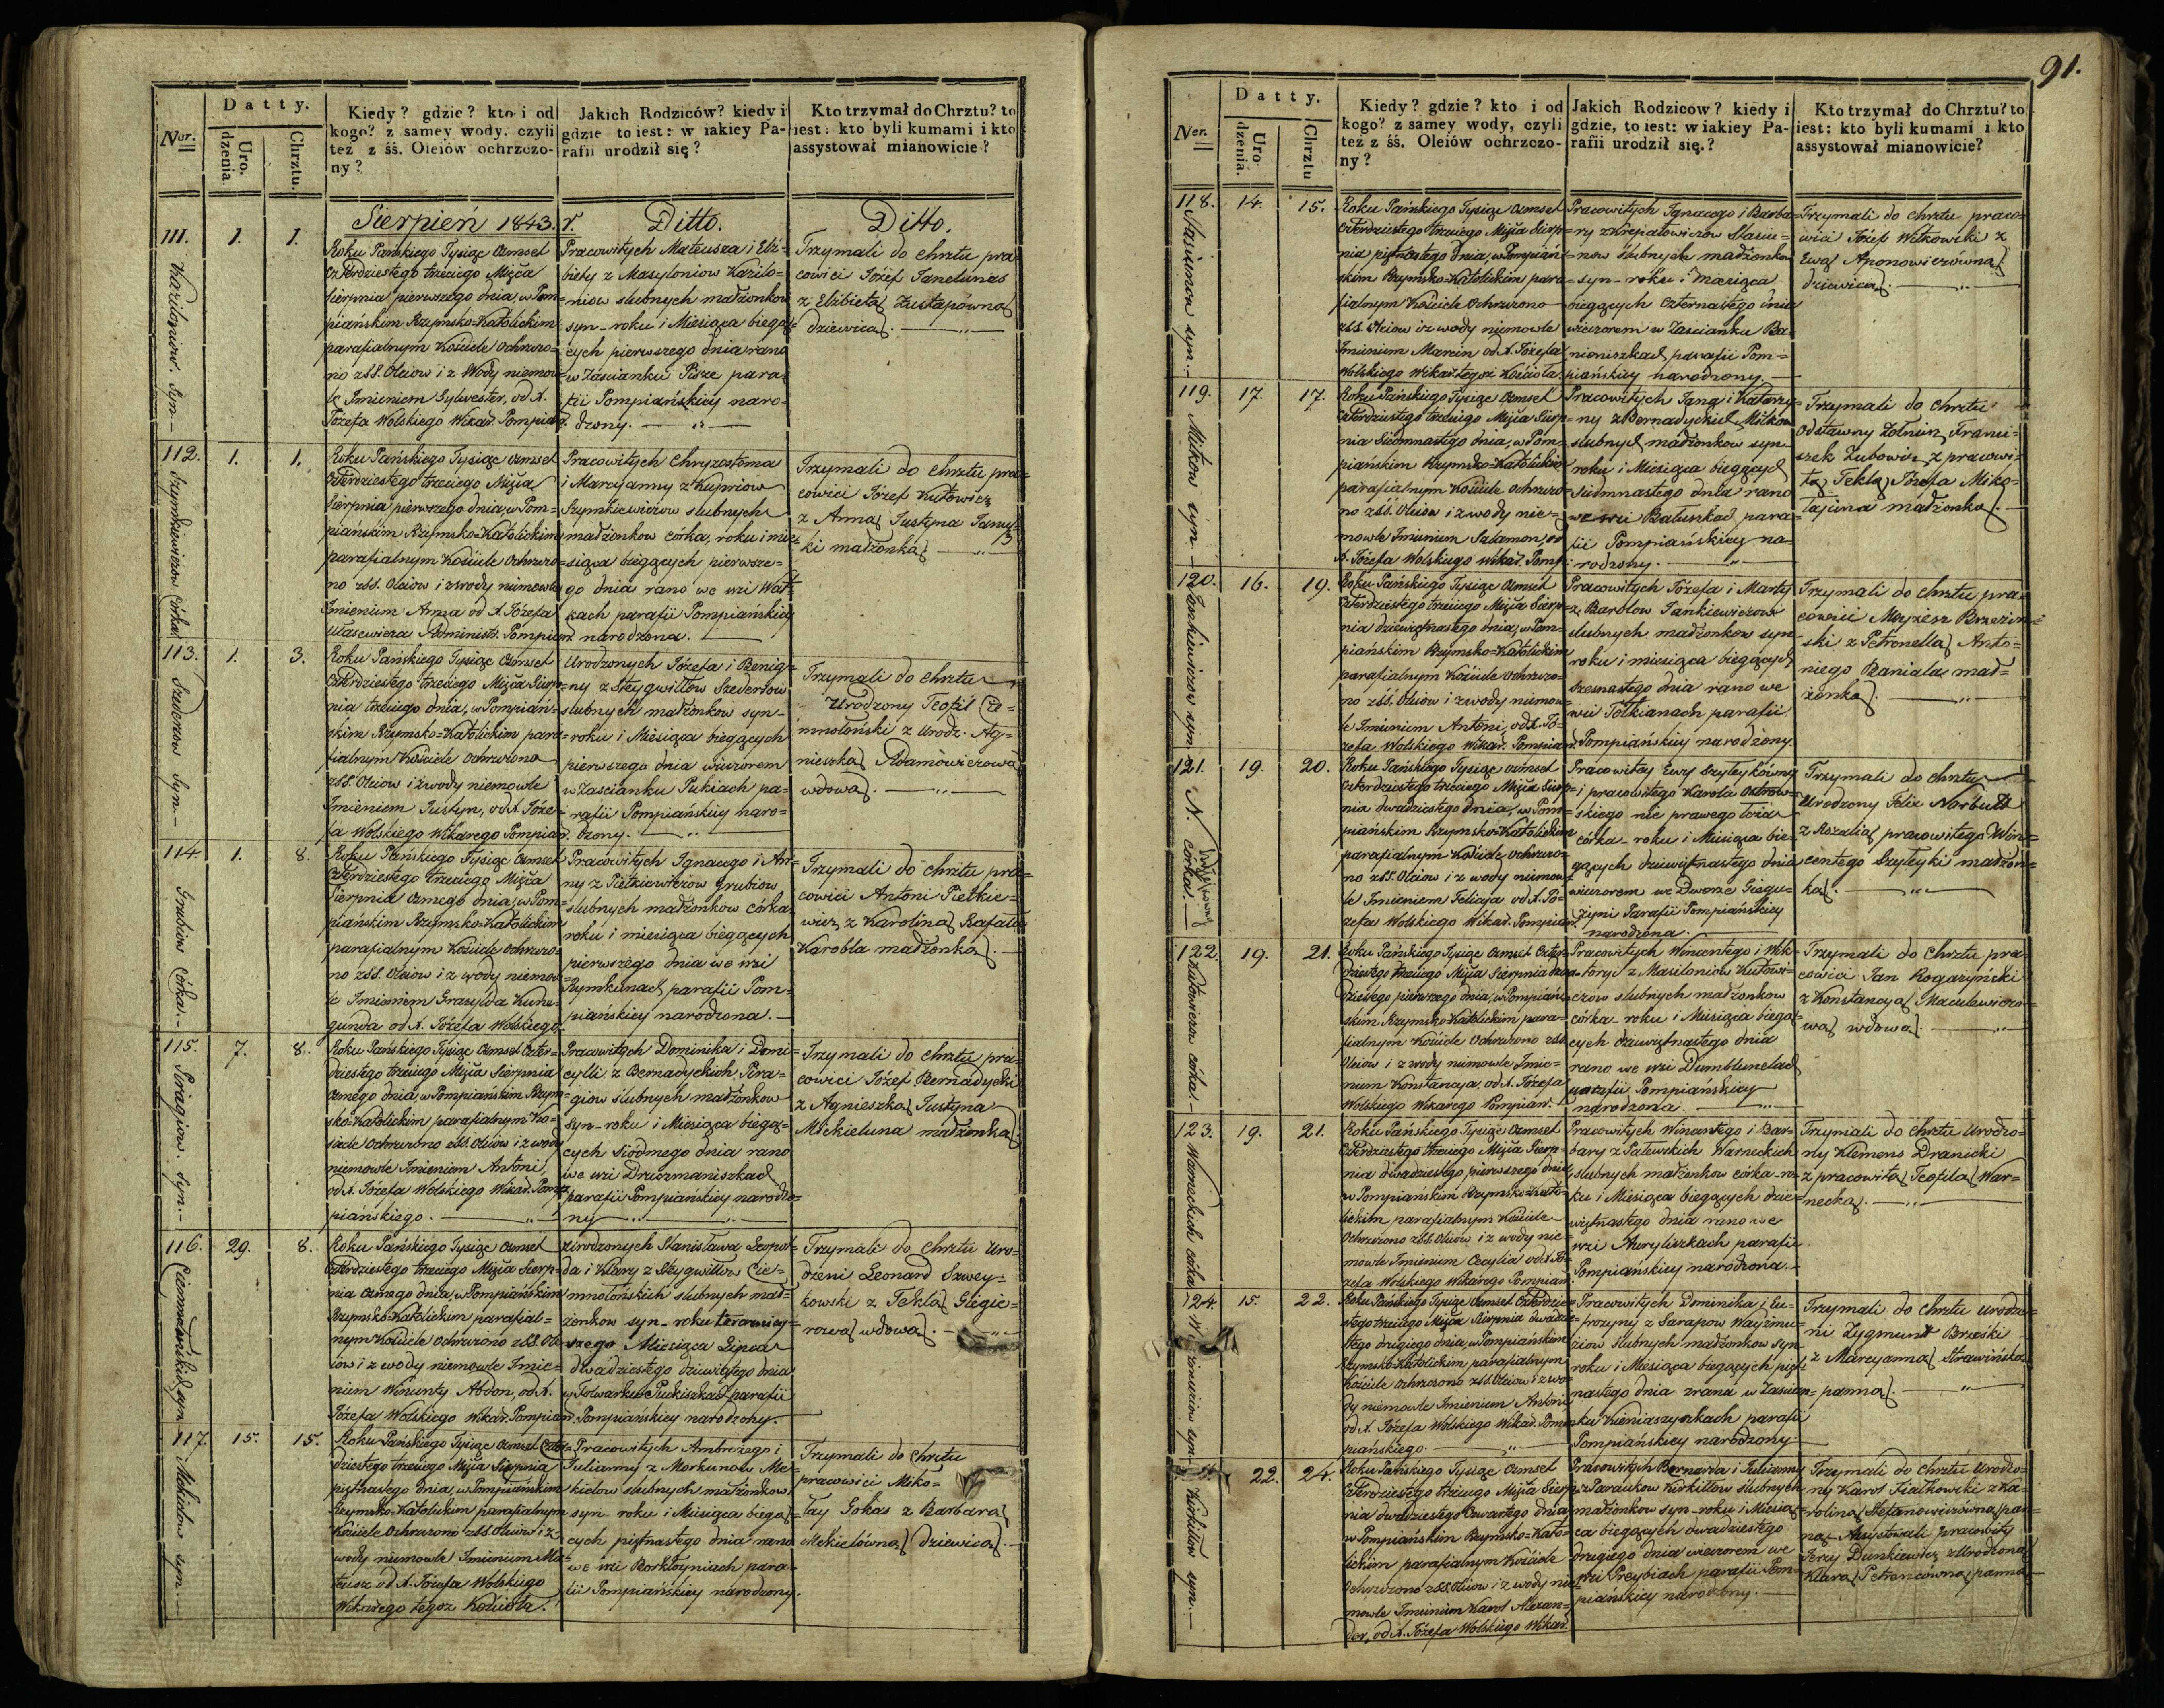 Datty.
Ner.
Uro-
dzenia.
Chrztu.
Kiedy? gdzie? kto i od
kogo? z samey wody, czyli
też z śś. Oleiów ochrzczo-
ny?
Jakich Rodziców? kiedy i
gdzie to iest: w iakiey Pa-
rafii urodził się?
Kto trzymał do Chrztu? to
iest: kto byli kumami i kto
assystował mianowicie?
Sierpień 1843. r.
Ditto.
Ditto.
111.
1.
1.
Roku Pańskiego Tysiąc Osmset
czterdziestego trzeciego Mięsca
Sierpnia pierwszego dnia, w Pom=
piańskim Rzymsko=Katolickim
parafialnym Kościele Ochrzczo=
no zSS. Oleiow i z Wody niemow=
le Imieniem Sylwester, od X.
Józefa Wolskiego Wikar. Pompian.
Pracowitych Mateusza i Elż=
biety z Masyloniow
slubnych małżonkow
syn - roku i Miesiąca biegą=
cych pierwszego dnia rano
w Zaścianku Pisze para=
fii Pompiańskiey naro=
dzony.
Trzymali do chrztu pra
cowici Józef Janelunas
z Elżbietą
dziewicą.
112.
1.
1.
Szymkiewiczow córka
Roku Pańskiego Tysiąc Osmset
czterdziestego trzeciego Mięsca
Sierpnia pierwszego dnia, w Pom=
piańskim Rzymsko=Katolickim
parafialnym Kościele Ochrzczo=
no zSS. Oleiow i z wody niemowle
Imieniem Anna od X. Józefa
Administr. Pompian.
Pracowitych Chryzostoma
i Maryanny z Kupriow
Szymkiewiczow slubnych
małżonkow córka, roku i mie=
siąca biegących pierwsze=
go dnia rano we wsi
kach parafii Pompiańskiey
narodzona.
Trzymali do chrztu pra=
cowici Józef Kutowicz
z Anną Justyna
ki małżonką
113.
1.
3.
Szederow syn
Roku Pańskiego Tysiąc Osmset
czterdziestego trzeciego Mięsca Sierp=
nia trzeciego dnia, w Pompiań=
skim Rzymsko=Katolickim para=
fialnym Kościele Ochrzczono
zSS. Oleiow i z wody niemowle
Imieniem Justyn, od X. Józe=
fa Wolskiego Wikarego Pompian.
Urodzonych Józefa i Benig=
ny z Steygwiłłow Szederow
slubnych małżonkow syn -
roku i Miesiąca biegących
pierwszego dnia wieczorem
w Zascianku Pukiach pa=
rafii Pompiańskiey naro=
dzony.
Trzymali do chrztu
Urodzony Teofil Cie=
mnołoński z Urodz. Ag=
nieszką Adamowiczową
wdową.
114.
1.
8.
Grubiow córka
Roku Pańskiego Tysiąc Osmset
czterdziestego trzeciego Mięsca
Sierpnia osmego dnia, w Pom=
piańskim Rzymsko=Katolickim
parafialnym Kościele Ochrzczo=
no zSS. Oleiow i z wody niemow=
le Imieniem Grasylda Kune=
gunda od X. Józefa Wolskiego.
Pracowitych Ignacego i An=
ny z Pietkiewiczow Grubiow
slubnych małżonkow córka
roku i miesiąca biegących
pierwszego dnia we wsi
Rymkunach parafii Pom=
piańskiey narodzona.
Trzymali do chrztu pra=
cowici Antoni Pietkie=
wicz z Karoliną Rafała
Karobla małżonką.
115.
7.
8.
Piragiow syn
Roku Pańskiego Tysiąc Osmset czter=
dziestego trzeciego Mięsca Sierpnia
osmego dnia, w Pompiańskim Rzym=
sko=Katolickim parafialnym Ko=
sciele Ochrzczono zSS. Oleiow i z wody
niemowle Imieniem Antoni,
od X. Józefa Wolskiego Wikar. Pom=
piańskiego.
Pracowitych Dominika i Domi=
cylli z Bernadyckich Pira=
giow slubnych małżonkow
syn - roku i Miesiąca biegą=
cych siodmego dnia rano
we wsi
parafii Pompiańskiey narodzo=
ny
Trzymali do chrztu pra=
cowici Józef Bernadycki
z Agnieszką Justyna
Mickieluna małżonką
116.
29.
8.
Ciemnołońskich syn
Roku Pańskiego Tysiąc Osmset
czterdziestego trzeciego Mięsca Sierp=
nia osmego dnia, w Pompiańskim
Rzymsko-Katolickim parafial=
nym Kościele Ochrzczono zSS. Ole=
iow i z wody niemowle Imie=
niem Wincenty Abdon, od X.
Józefa Wolskiego Wikar. Pompian.
Urodzonych Stanisława Leopol=
da i Klary z Stygwiłłow Cie=
mnołońskich slubnych mał=
żonkow syn - roku teraźniey=
szego Miesiąca Lipca
dwódziestego dziewiątego dnia
w Folwarku Puckiszkach parafii
Pompiańskiey narodzony.
Trzymali do chrztu Uro=
dzeni Leonard Szwey=
kowski z Teklą Giegie=
rową wdową.
117.
15.
15.
Mekielow syn
Roku Pańskiego Tysiąc Osmset Czter=
dziestego trzeciego Mięsca Sierpnia
piętnastego dnia, w Pompiańskim
Rzymsko-Katolickim parafialnym
Kościele Ochrzczono zSS. Oleiow i z
wody niemowle Imieniem Ma=
teusz od X. Józefa Wolskiego
Wikarego tegoż Kościoła.
Pracowitych Ambrożego i
Julianny z Morkunow Me=
kielow slubnych małżonkow,
syn - roku i Miesiąca biegą=
cych piętnastego dnia rano
we wsi para=
fii Pompiańskiey narodzony.
Trzymali do chrztu
pracowici Miko=
łay Sokas z Barbarą
Mekielówną dziewicą.
91.
Datty.
Ner.
Uro-
dzenia.
Chrztu
Kiedy? gdzie? kto i od
kogo? z samey wody, czyli
też z śś. Oleiów ochrzczo-
ny?
Jakich Rodziców? kiedy i
gdzie, to iest: w iakiey Pa-
rafii urodził się.?
Kto trzymał do Chrztu? to
iest: kto byli kumami i kto
assystował mianowicie?
118.
14.
15.
Stasiunow syn
Roku Pańskiego Tysiąc Osmset
czterdziestego trzeciego Mięsca Sierp=
nia piętnastego dnia, w Pompiań=
skim Rzymsko-Katolickim para=
fialnym Kościele Ochrzczono
zSS. Oleiow i z wody niemowle
Imieniem Marcin od X. Józefa
Wolskiego Wikar. tegoż Kościoła.
Pracowitych Ignacego i Barba=
ry z Krepsztowiczow Stasiu=
now slubnych małżonkow
syn - roku i Miesiąca
biegących czternastego dnia
wieczorem w Zascianku Ba=
nioniszkach parafii Pom=
piańskiey narodzony.
Trzymali do chrztu praco=
wici Józef Witkowski z
Ewą Aponowiczówną
dziewicą.
119.
17.
17.
Mikow syn
Roku Pańskiego Tysiąc Osmset
czterdziestego trzeciego Mięsca Sierp=
nia Siedmnastego dnia, w Pom=
piańskim Rzymsko=Katolickim
parafialnym Kościele Ochrzczo=
no zSS. Oleiow i z wody nie=
mowle Imieniem Salamon, od
X. Józefa Wolskiego Wikar. Pomp.
Pracowitych Jana i Katarzy=
ny z Bernadyckich Mikow
slubnych małżonkow syn
roku i Miesiąca biegących
siedmnastego dnia rano
we wsi Bałuszkach para=
fii Pompiańskiey na=
rodzony.
Trzymali do chrztu
odstawny Żołnierz Franci=
szek Zubowicz z pracowi=
tą Teklą Józefa Miko=
łajuna małżonką.
120.
16.
19.
Jankiewiczow syn
Roku Pańskiego Tysiąc Osmset
czterdziestego trzeciego Mięsca Sierp=
nia dziewiętnastego dnia, w Pom=
piańskim Rzymsko-Katolickim
parafialnym Kościele Ochrzczo=
no zSS. Oleiow i z wody niemow=
le Imieniem Antoni, od X. Jó=
zefa Wolskiego Wikar. Pompian.
Pracowitych Józefa i Marty
z Barolow Jankiewiczow
slubnych małżonkow syn
roku i miesiąca biegących
szesnastego dnia rano we
wsi Tolkianach parafii
Pompiańskiey narodzony.
Trzymali do chrztu pra=
cowici Moyżesz Brzezin=
ski z Petronellą Anto=
niego Baniala mał=
żonką.
121.
19.
20.
N.
córka.
Roku Pańskiego Tysiąc Osmset
czterdziestego trzeciego Mięsca Sierp=
nia dwudziestego dnia, w Pom=
piańskim Rzymsko=Katolickim
parafialnym Kościele Ochrzczo=
no zSS. Oleiow i z wody niemow=
le Imieniem Felicya od X. Jó=
zefa Wolskiego Wikar. Pompian.
Pracowitey Ewy Szyleykówny
i pracowitego Karola Ostrow=
skiego nie prawego łoża
córka - roku i Miesiąca bie=
gących dziewiętnastego dnia
wieczorem we Dworze Giegu=
żyni Parafii Pompiańskiey
narodzona.
Trzymali do chrztu
Urodzony Felix Narbutt
z Rozalią pracowitego Win=
centego Szyleyki małżon=
ką.
122.
19.
21.
Kutowiczow córka
Roku Pańskiego Tysiąc Osmset Czter=
dziestego trzeciego Mięsca Sierpnia dwu=
dziestego pierwszego dnia, w Pompiań=
skim Rzymsko-Katolickim para=
fialnym Kościele Ochrzczono zSS.
Oleiow i z wody niemowle Imie=
niem Konstancya, od X. Józefa
Wolskiego Wikarego Pompian.
Pracowitych Wincentego i Wik=
toryi z Masiloniow Kutowi=
czow slubnych małżonkow
córka - roku i Miesiąca biegą=
cych dziewiętnastego dnia
rano we wsi Dumblunelach
parafii Pompiańskiey
narodzona.
Trzymali do chrztu pra=
cowici Jan
z Konstancyą Maculewiczo=
wą wdową.
123.
19.
21.
Warneckich córka
Roku Pańskiego Tysiąc Osmset
czterdziestego trzeciego Mięsca Sierp=
nia dwudziestego pierwszego dnia
w Pompiańskim Rzymsko-Kato=
lickim parafialnym Kościele
Ochrzczono zSS. Oleiow i z wody nie=
mowle Imieniem Cecylia od X. Jó=
zefa Wolskiego Wikarego Pompian.
Pracowitych Wincentego i Bar=
bary z Salewskich Warneckich
slubnych małżonkow córka - ro=
ku i Miesiąca biegących dzie=
więtnastego dnia rano we
wsi Awryliszkach parafii
Pompiańskiey narodzona.
Trzymali do chrztu Urodzo=
ny Klemens Dranicki
z pracowitą Teofilą War=
necką.
124.
15.
22.
Roku Pańskiego Tysiąc Osmset Czterdzie=
stego trzeciego Mięsca Sierpnia dwudzie=
stego drugiego dnia, w Pompiańskim
Rzymsko-Katolickim parafialnym
Kościele Ochrzczono zSS. Oleiow i z wo=
dy niemowle Imieniem Antoni
od X. Józefa Wolskiego Wikar. Pom=
piańskiego.
Pracowitych Dominika i Eu=
frozyny z Sarapow Wayżmu=
ziow slubnych małżonkow syn
roku i Miesiąca biegących pięt=
nastego dnia zrana w Zascian=
ku Kieniaszyszkach parafii
Pompiańskiey narodzony.
Trzymali do chrztu Urodze=
ni Zygmunt Brzeski
z Maryanną Strawińską
panną.
22.
24.
Kirkiłłow syn
Roku Pańskiego Tysiąc Osmset
czterdziestego trzeciego Mięsca Sierp=
nia dwudziestego Czwartego dnia
w Pompiańskim Rzymsko=Kato=
lickim parafialnym Kościele
Ochrzczono zSS. Oleiow i z wody nie=
mowle Imieniem Karol Alexan=
der, od X. Józefa Wolskiego Wikar.
Pracowitych Bernarda i Julianny
z Kirkiłłow slubnych
małżonkow syn - roku i Miesią=
ca biegących dwudziestego
drugiego dnia wieczorem we
wsi Preybiach parafii Pom=
piańskiey narodzony.
Trzymali do chrztu Urodzo=
ny Karol Fiałkowski z Ka=
roliną Stefanowiczówną pan=
ną - Assystowali pracowity
Jerzy Dunkiewicz z Urodzoną
Klarą panną